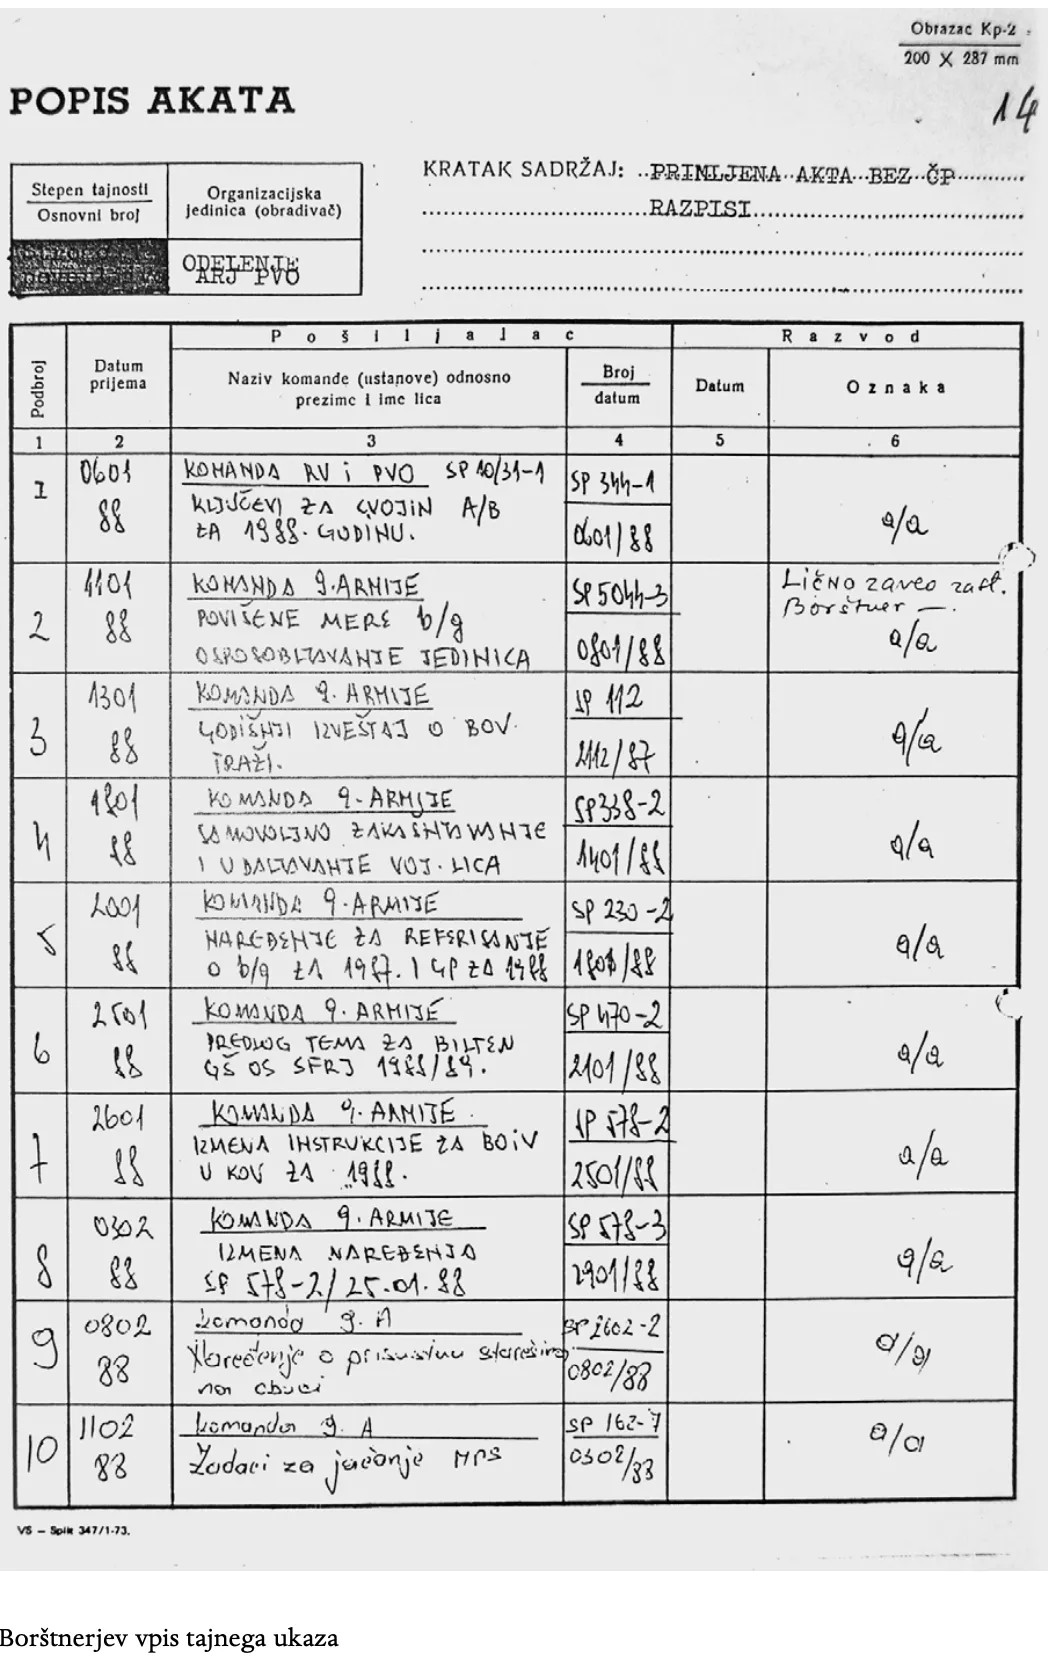 Obrazac Kp-2
200 X 287 mm
14
POPIS AKATA
Stepen tajnosti
Osnovni broj
Organizacijska
jedinica (obrađivač)
ODELENJE
ARJ PVO
KRATAK SADRŽAJ: ..PRIMLJENA..AKTA..BEZ..ČP
RAZPISI
Podbroj
Datum
prijema
Pošiljalac
Naziv komande (ustanove) odnosno
prezime i ime lica
Broj
datum
Razvod
Datum
Oznaka
1 2 3 4 5 6
1
0601
88
KOMANDA RV i PVO SP 10/31-1
KLJUČEVI ZA GVOJIN A/B
ZA 1988. GODINU.
SP 344-1
0601/88
a/a
2
1101
88
KOMANDA 9. ARMIJE
POVIŠENE MERE b/g
OSPOSOBLJAVANJE JEDINICA
SP 5044-3
0801/88
Lično zaveo zast.
Borštner —.
a/a
3
1301
88
KOMANDA 9. ARMIJE
GODIŠNJI IZVEŠTAJ O BOV
TRAŽI.
SP 112
2112/87
a/a
4
1801
88
KOMANDA 9. ARMIJE
SAMOVOLJNO ZAKAŠNJAVANJE
I UDALJAVANJE VOJ. LICA
SP 338-2
1401/88
a/a
5
2001
88
KOMANDA 9. ARMIJE
NAREĐENJE ZA REFERISANJE
O b/g ZA 1987. I GP ZA 1988
SP 230-2
1801/88
a/a
6
2501
88
KOMANDA 9. ARMIJE
PREDLOG TEMA ZA BILTEN
GŠ OS SFRJ 1988/89.
SP 470-2
2101/88
a/a
7
2601
88
KOMANDA 9. ARMIJE.
IZMENA INSTRUKCIJE ZA BOiV
U KOV ZA 1988.
SP 578-2
2501/88
a/a
8
0302
88
KOMANDA 9. ARMIJE
IZMENA NAREĐENJA
SP 578-2/25.01.88
SP 578-3
2901/88
a/a
9
0802
88
Komanda 9. A
Naređenje o prisustvu starešina
na obuci
SP 2602-2
0802/88
a/a
10
1102
88
Komanda 9. A
Zadaci za jačanje MPS
SP 162-7
0302/88
a/a
VS – Split 347/1-73.
Borštnerjev vpis tajnega ukaza